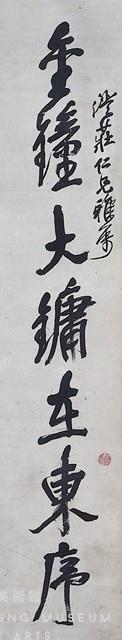 金鐘大鏞在東序
澄莊仁兄雅屬
美術館
UNG MUSEUM
ARTS